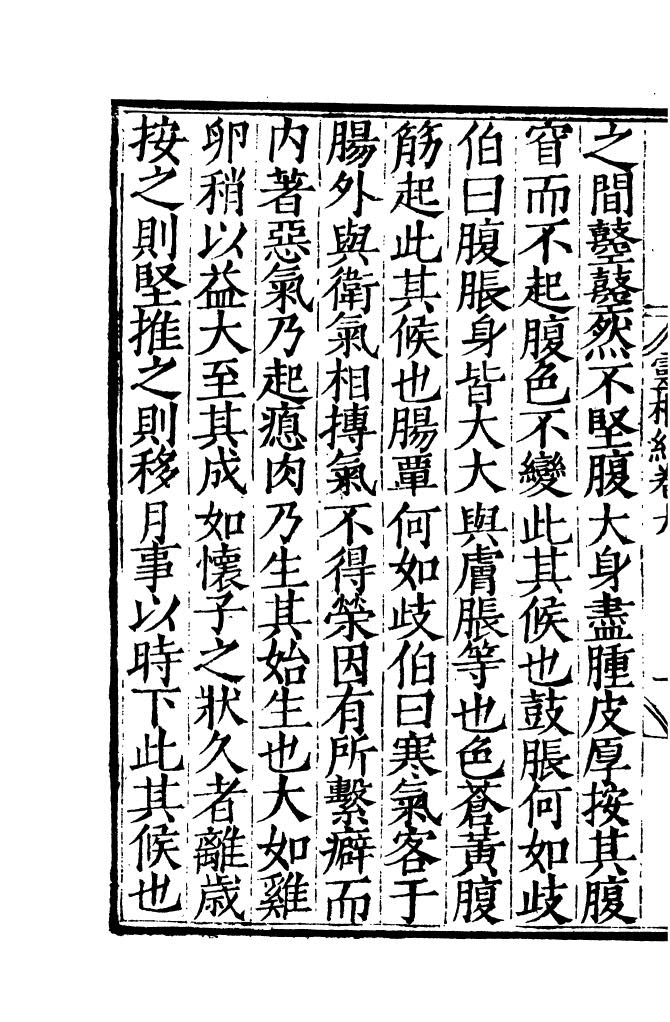 之間䥗䥗然不堅腹大身盡腫皮厚按其腹
窅而不起腹色不變此其候也鼓脹何如歧
伯曰腹脹身皆大大與膚脹等也色蒼黃腹
筋起此其候也腸覃何如歧伯曰寒氣客于
腸外與衛氣相摶氣不得榮因有所繫癖而
内著惡氣乃起瘜肉乃生其始生也大如雞
卵稍以益大至其成如懷子之狀久者離歳
按之則堅推之則移月事以時下此其候也